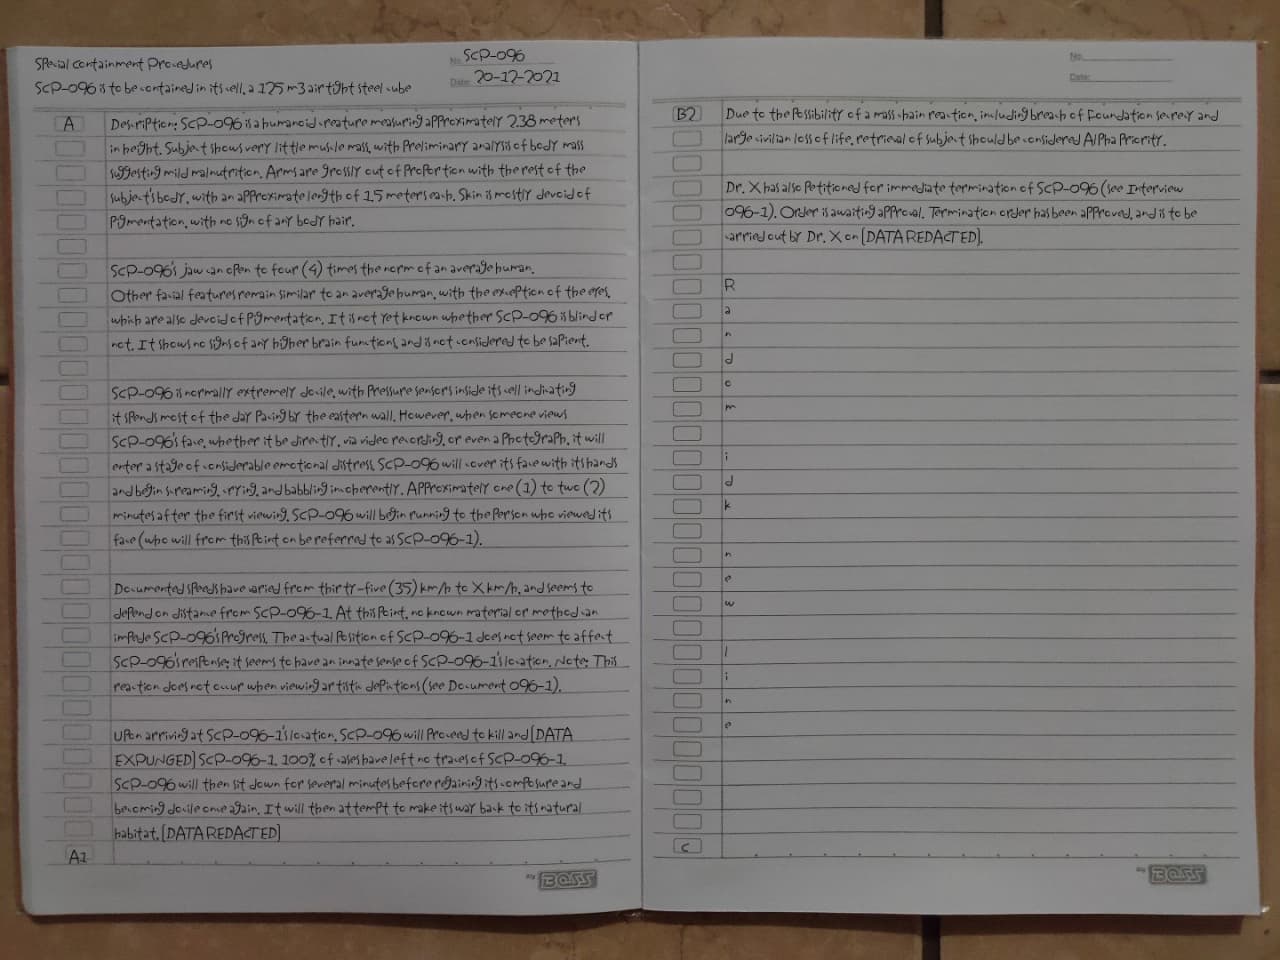 Special Containment Procedures
SCP-096 is to be contained in its cell, a 125 m3 airtight steel cube
No. SCP-096
Date: 20-12-2021
A
Description: SCP-096 is a humanoid creature measuring approximately 2.38 meters
in height. Subject shows very little muscle mass, with preliminary analysis of body mass
suggesting mild malnutrition. Arms are grossly out of proportion with the rest of the
subject's body, with an approximate length of 1.5 meters each. Skin is mostly devoid of
pigmentation, with no sign of any body hair.
SCP-096's jaw can open to four (4) times the norm of an average human.
Other facial features remain similar to an average human, with the exception of the eyes,
which are also devoid of pigmentation. It is not yet known whether SCP-096 is blind or
not. It shows no signs of any higher brain functions, and is not considered to be sapient.
SCP-096 is normally extremely docile, with pressure sensors inside its cell indicating
it spends most of the day pacing by the eastern wall. However, when someone views
SCP-096's face, whether it be directly, via video recording, or even a photograph, it will
enter a stage of considerable emotional distress. SCP-096 will cover its face with its hands
and begin screaming, crying, and babbling incoherently. Approximately one (1) to two (2)
minutes after the first viewing, SCP-096 will begin running to the person who viewed its
face (who will from this point on be referred to as SCP-096-1).
Documented speeds have varied from thirty-five (35) km/h to X km/h, and seems to
depend on distance from SCP-096-1. At this point, no known material or method can
impede SCP-096's progress. The actual position of SCP-096-1 does not seem to affect
SCP-096's response; it seems to have an innate sense of SCP-096-1's location. Note: This
reaction does not occur when viewing artistic depictions (see Document 096-1).
Upon arriving at SCP-096-1's location, SCP-096 will proceed to kill and [DATA
EXPUNGED] SCP-096-1. 100% of cases have left no traces of SCP-096-1.
SCP-096 will then sit down for several minutes before regaining its composure and
becoming docile once again. It will then attempt to make its way back to its natural
habitat, [DATA REDACTED]
A1
By BOSS
No.
Date:
B2
Due to the possibility of a mass chain reaction, including breach of Foundation secrecy and
large civilian loss of life, retrieval of subject should be considered Alpha priority.
Dr. X has also petitioned for immediate termination of SCP-096 (see Interview
096-1). Order is awaiting approval. Termination order has been approved, and is to be
carried out by Dr. X on [DATA REDACTED].
R
a
n
d
o
m
i
d
k
n
e
w
l
i
n
e
C
By BOSS